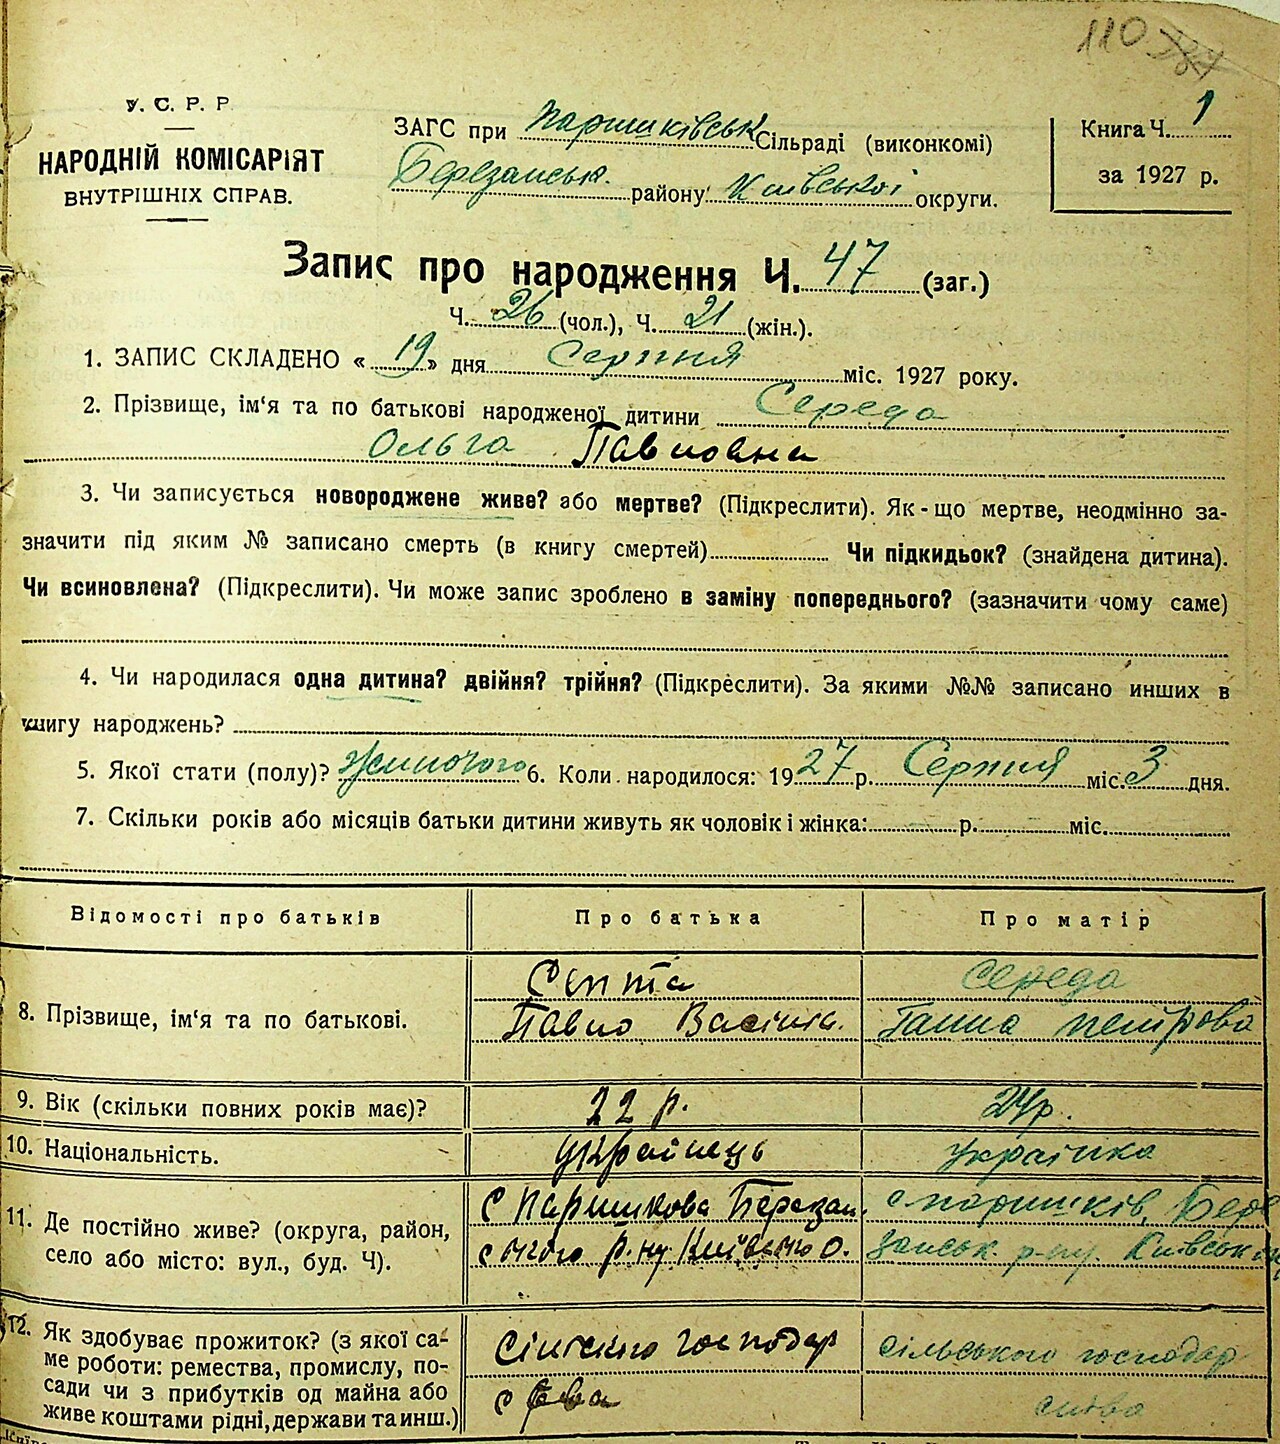 110
У. С. Р. Р.
НАРОДНІЙ КОМІСАРІЯТ
ВНУТРІШНІХ СПРАВ.
ЗАГС при Паришківськ Сільраді (виконкомі)
Березанськ. району Київської округи.
Книга Ч. 1
за 1927 р.
Запис про народження Ч. 47 (заг.)
Ч. 26 (чол.), Ч. 21 (жін.).
1. ЗАПИС СКЛАДЕНО « 19 » дня Серпня міс. 1927 року.
2. Прізвище, ім'я та по батькові народженої дитини Середа
Ольга Павловна
3. Чи записується новороджене живе? або мертве? (Підкреслити). Як-що мертве, неодмінно за-
значити під яким № записано смерть (в книгу смертей) Чи підкидьок? (знайдена дитина).
Чи всиновлена? (Підкреслити). Чи може запис зроблено в заміну попереднього? (зазначити чому саме)
4. Чи народилася одна дитина? двійня? трійня? (Підкреслити). За якими №№ записано инших в
книгу народжень?
5. Якої стати (полу)? Жиночого 6. Коли народилося: 1927 р. Серпня міс. 3 дня.
7. Скільки років або місяців батьки дитини живуть як чоловік і жінка: р. міс.
Відомості про батьків Про батька Про матір
8. Прізвище, ім'я та по батькові.
Середа
Павло Василь. Ганна Петрова
9. Вік (скільки повних років має)? 22 р. 24 р.
10. Національність. Українець Українка
11. Де постійно живе? (округа, район,
село або місто: вул., буд. Ч).
с Паришкова Березан. с Паришків, Бере
ського р-ну Київського О. занськ. р-ну. Київськ
12. Як здобуває прожиток? (з якої са-
ме роботи: ремества, промислу, по-
сади чи з прибутків од майна або
живе коштами рідні, держави та инш.)
Сільского господар сільського господар
ства ства